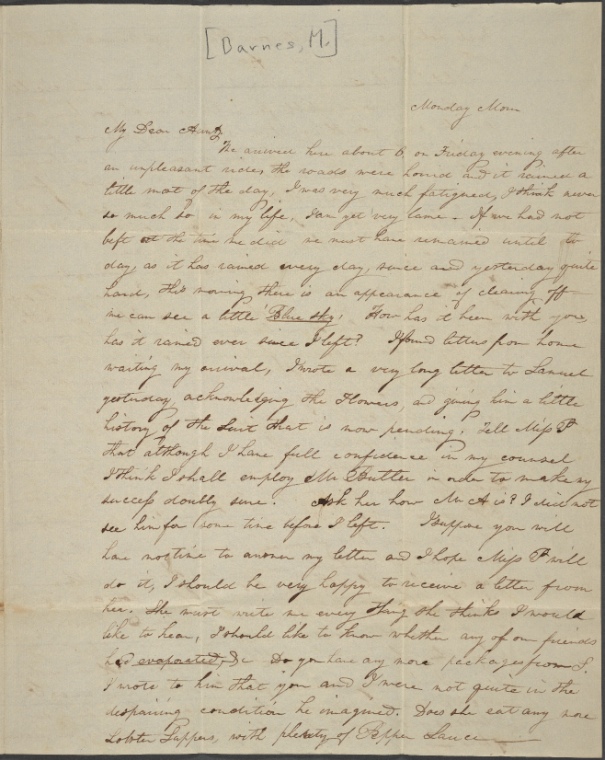 [Barnes, M.]
Monday Morn
My Dear Aunt
We arrived here about 6, on Friday evening after
an unpleasant ride, the roads were horrid and it rained a
little most of the day, I was very much fatigued, I think never
so much so in my life, I am yet very lame – If we had not
left at the time we did we must have remained until to
day, as it has rained every day, since and yesterday quite
hard, this moving there is an appearance of clearing off
we can see a little Blue sky. How has it been with you,
has it rained ever since I left? I found letters from home
waiting my arrival, I wrote a very long letter to Samuel
yesterday, acknowledging the Flowers, and giving him a little
history of the Suit that is now pending. Tell Miss P
that although I have full confidence in my counsel
I think I shall employ Mr Butler in order to make my
success doubly sure. Ask her how Mr A is? I did not
see him for some time before I left. I suppose you will
have no time to answer my letter and I hope Miss P will
do it, I should be very happy to receive a letter from
her. She must write me every thing she thinks I would
like to hear, I should like to know whether any of our friends
had evaporated, &c Do you have any more packages from S.
I wrote to him that you and I were not quite in the
despairing condition he imagined. Does she eat any more
Lobster Suppers, with plenty of Pepper Sauce